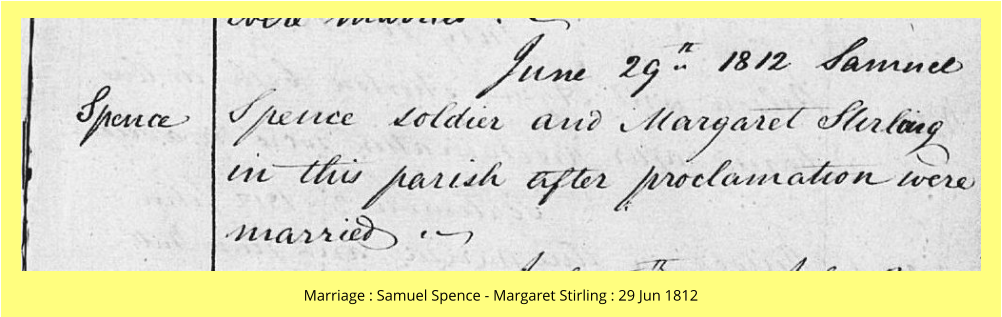 were married.
June 29th 1812 Samuel
Spence
Spence soldier and Margaret Sterling
in this parish after proclamation were
married
Marriage : Samuel Spence - Margaret Stirling : 29 Jun 1812